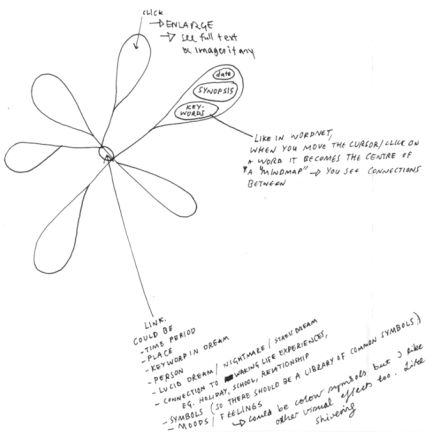 CLICK
→ ENLARGE
→ see full text
& images if any
date
SYNOPSIS
KEY-
WORDS
LIKE IN WORDNET,
WHEN YOU MOVE THE CURSOR/CLICK ON
A WORD IT BECOMES THE CENTRE OF
A "MINDMAP" → YOU SEE CONNECTIONS
BETWEEN
LINK.
COULD BE
- TIME PERIOD
- PLACE
- KEYWORD IN DREAM
- PERSON
- LUCID DREAM / NIGHTMARE / STOCK DREAM
- CONNECTION TO WAKING LIFE EXPERIENCES,
EG. HOLIDAY, SCHOOL, RELATIONSHIP
- SYMBOLS (SO THERE SHOULD BE A LIBRARY OF COMMON SYMBOLS)
- MOODS / FEELINGS
→ could be colour symbols but I like
other visual effects too. Like
shivering